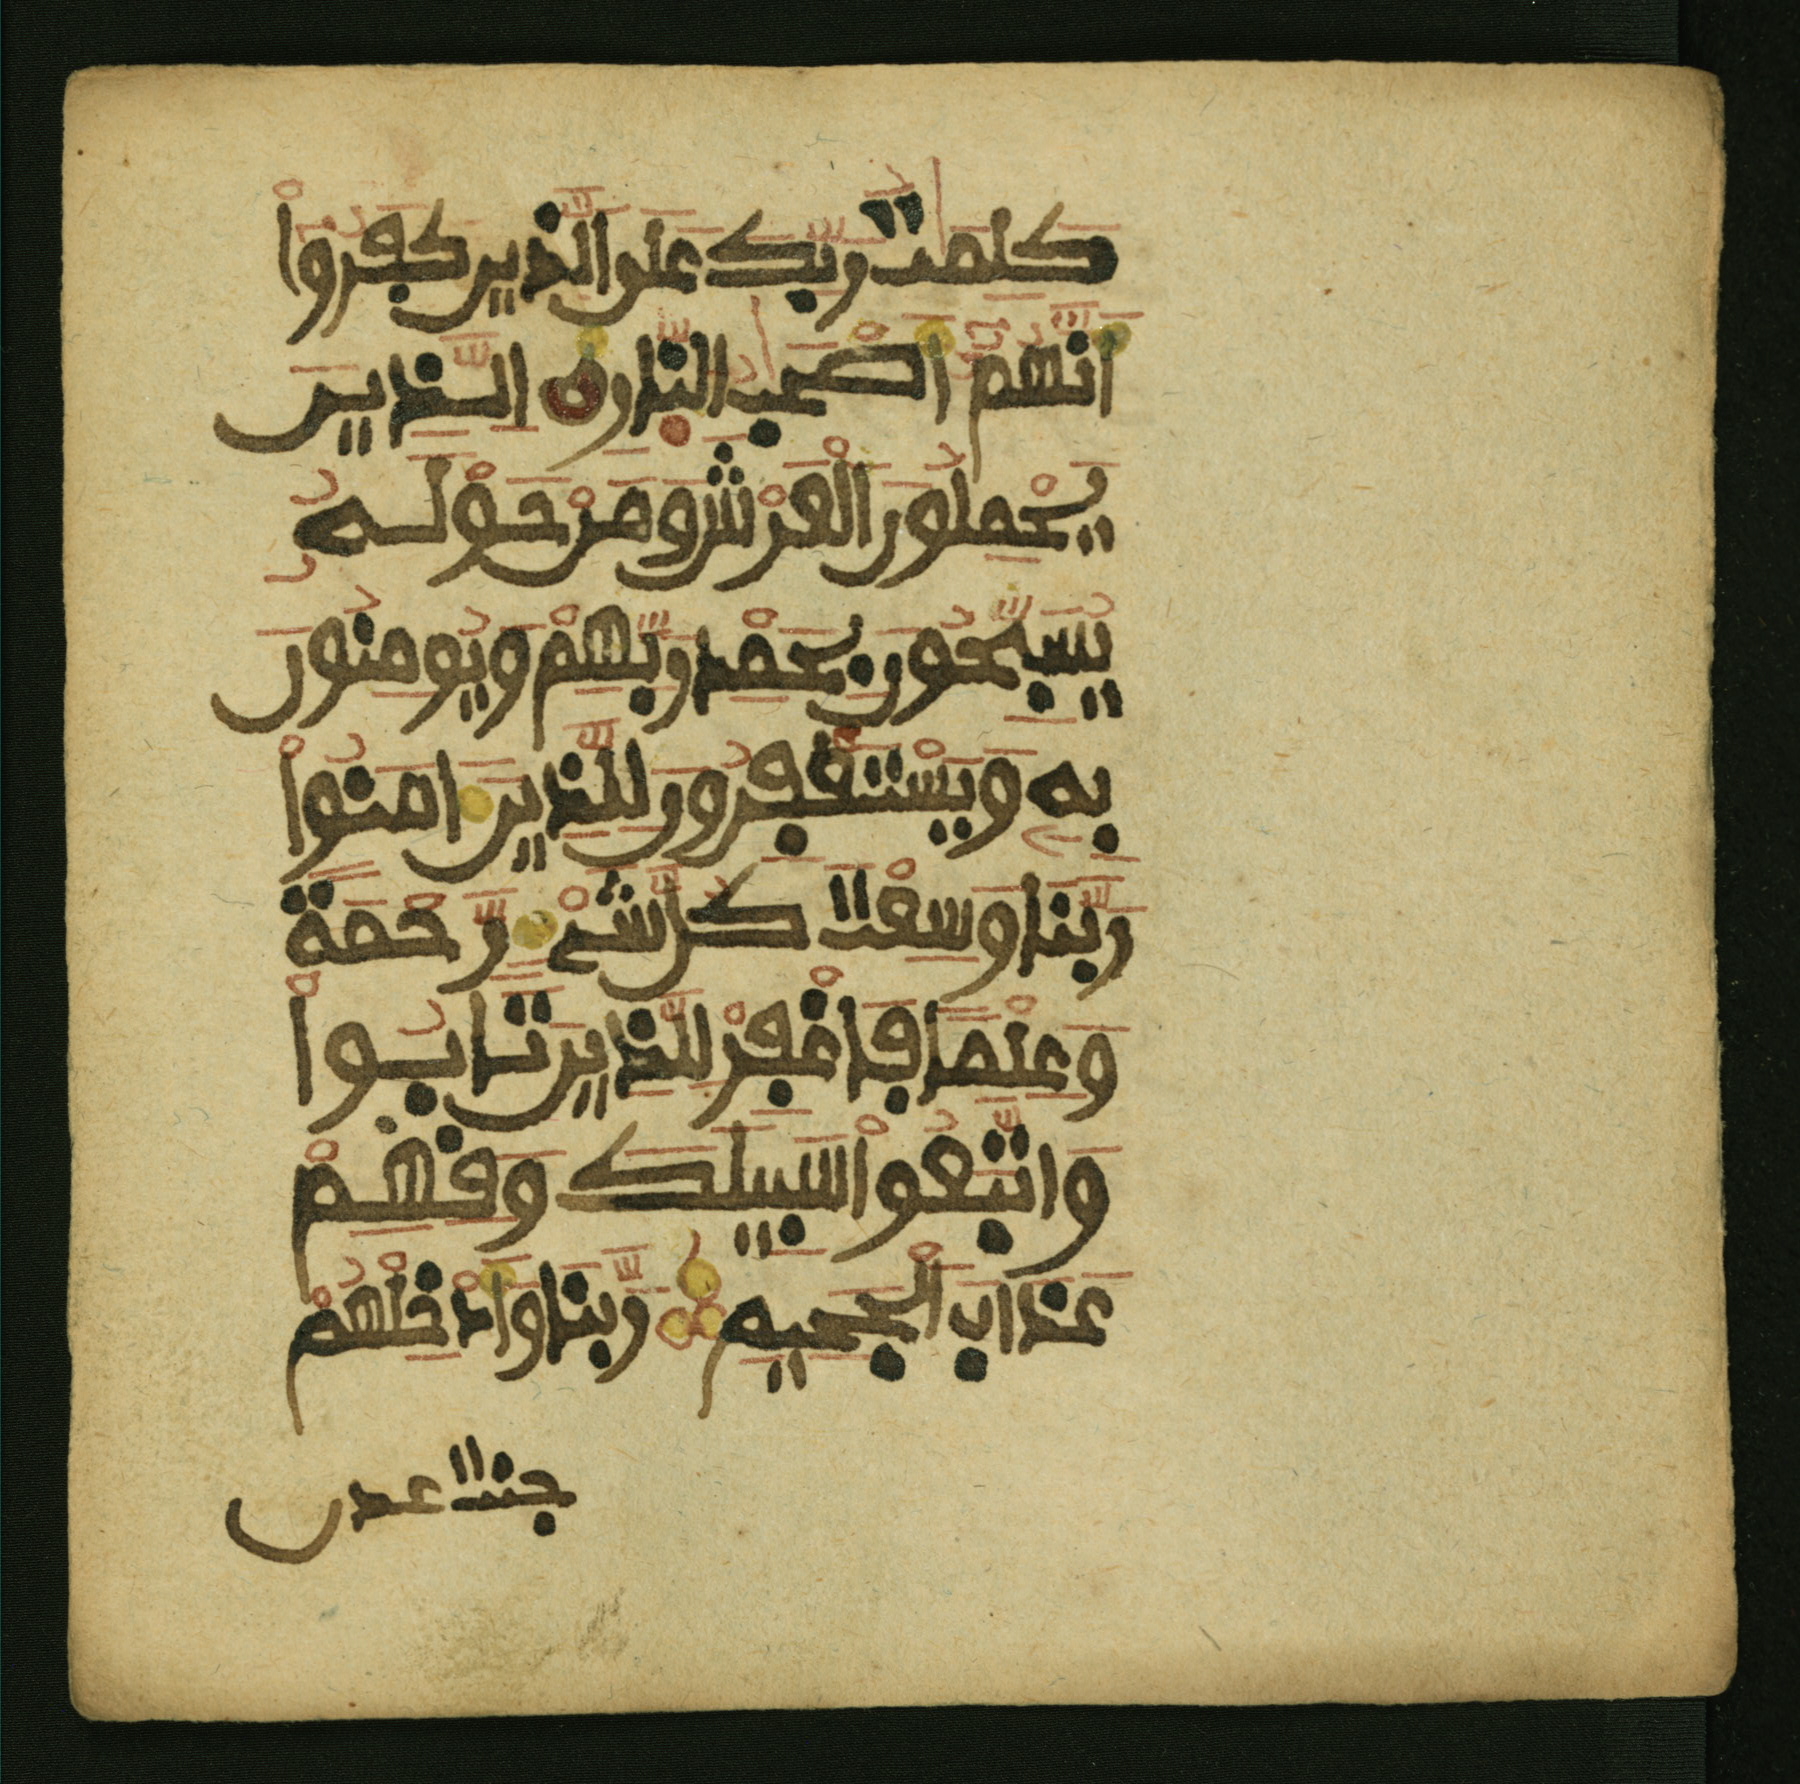 كَلِمَٰتُ رَبِّكَ عَلَى الَّذِينَ كَفَرُوٓاْ
أَنَّهُمُۥٓ أَصْحَٰبُ النَّارِ ۞ الَّذِينَ
يَحْمِلُونَ الْعَرْشَ وَمَنْ حَوْلَهُۥ
يُسَبِّحُونَ بِحَمْدِ رَبِّهِمْ وَيُومِنُونَ
بِهِۦ وَيَسْتَغْفِرُونَ لِلَّذِينَ ءَامَنُواْ
رَبَّنَا وَسِعْتَ كُلَّ شَيْءٍ رَّحْمَةً
وَعِلْمًا فَاغْفِرْ لِلَّذِينَ تَابُواْ
وَاتَّبَعُواْ سَبِيلَكَ وَقِهِمْ
عَذَابَ الْجَحِيمِ رَبَّنَا وَأَدْخِلْهُمْ
جنت عدن